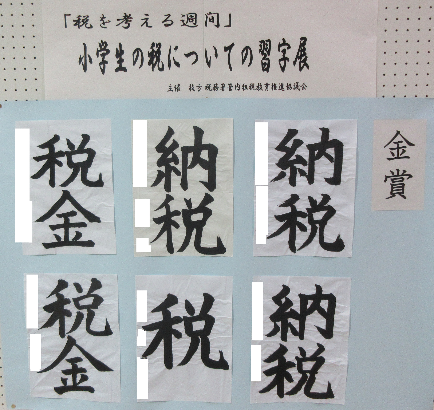 「税を考える週間」
小学生の税についての習字展
主催 枚方税務署管内租税教育推進協議会
金賞
納税
納税
税金
納税
税
税金